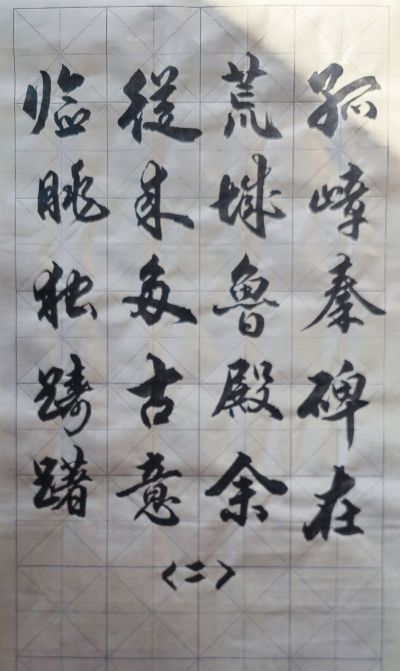 孤嶂秦碑在
荒城魯殿余
從来多古意
临眺独躊躇
〈二〉